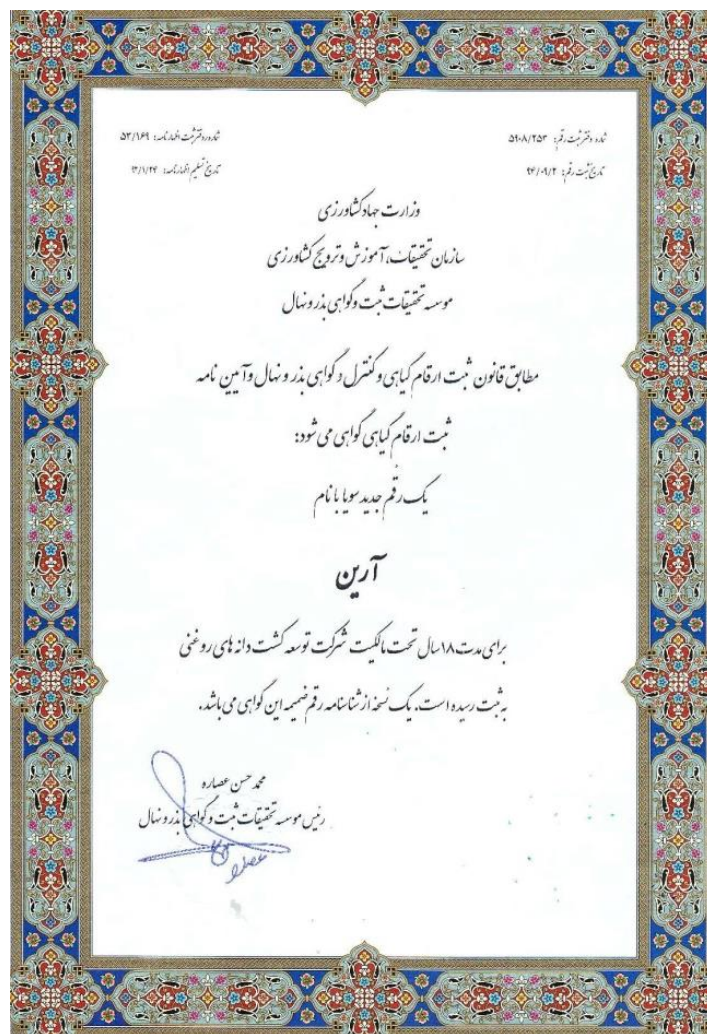 شماره دفتر ثبت رقم: ۵۹۰۸/۲۵۳
تاریخ ثبت رقم: ۹۴/۰۹/۲
شماره در دفتر ثبت اظهارنامه: ۵۳/۱۶۹
تاریخ تسلیم اظهارنامه: ۹۳/۱/۲۴
وزارت جهاد کشاورزی
سازمان تحقیقات، آموزش و ترویج کشاورزی
موسسه تحقیقات ثبت و گواهی بذر و نهال
مطابق قانون ثبت ارقام گیاهی و کنترل و گواهی بذر و نهال و آیین نامه
ثبت ارقام گیاهی گواهی می شود:
یک رقم جدید سویا با نام
آرین
برای مدت ۱۸ سال تحت مالکیت شرکت توسعه کشت دانه های روغنی
به ثبت رسیده است. یک نسخه از شناسنامه رقم ضمیمه این گواهی می باشد.
محمد حسن عصاره
رئیس موسسه تحقیقات ثبت و گواهی بذر و نهال